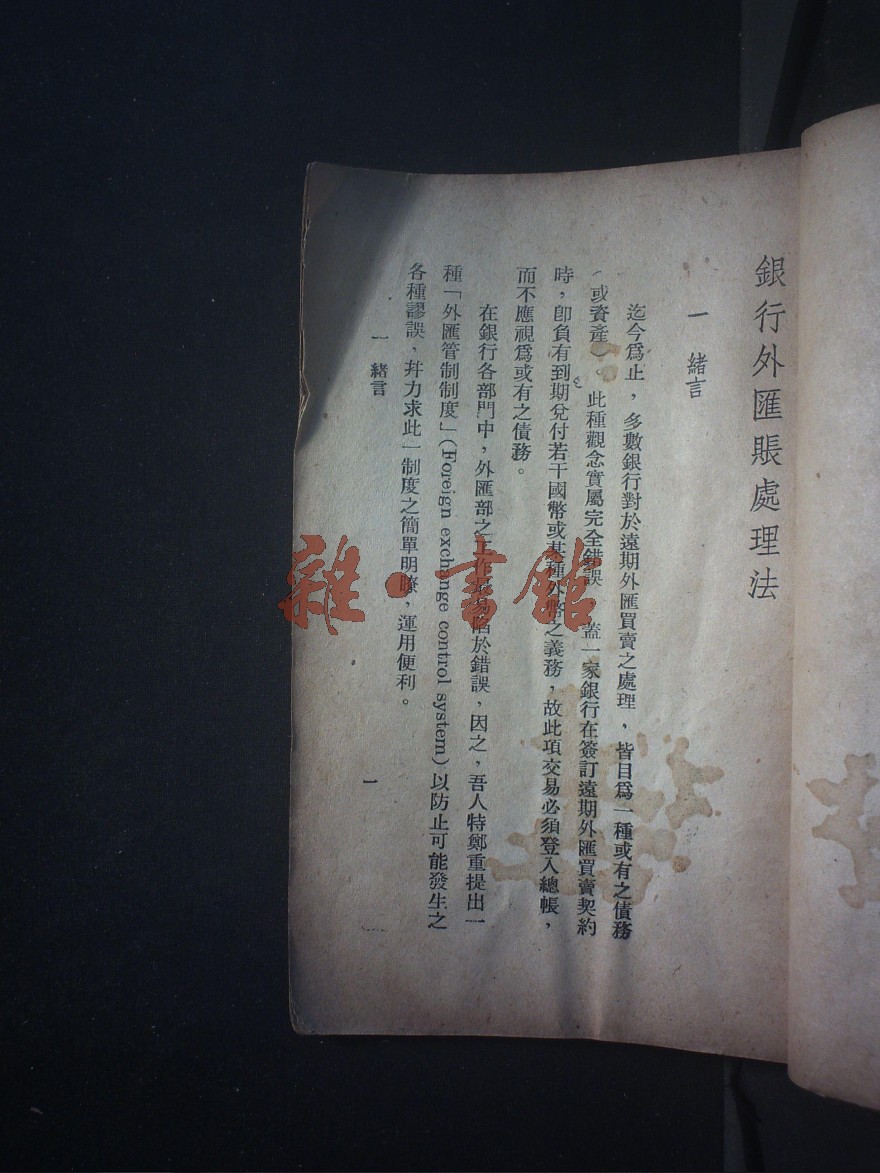 銀行外匯賬處理法
一 緒言
迄今爲止，多數銀行對於遠期外匯買賣之處理，皆目爲一種或有之債務
（或資產）。此種觀念實屬完全錯誤 蓋一家銀行在簽訂遠期外匯買賣契約
時，卽負有到期兌付若干國幣或某種外幣之義務，故此項交易必須登入總帳，
而不應視爲或有之債務。
在銀行各部門中，外匯部之工作最易陷於錯誤，因之，吾人特鄭重提出一
種「外匯管制制度」(Foreign exchange control system)以防止可能發生之
各種謬誤，幷力求此一制度之簡單明暸，運用便利。
一 緒言
一
雜·書館